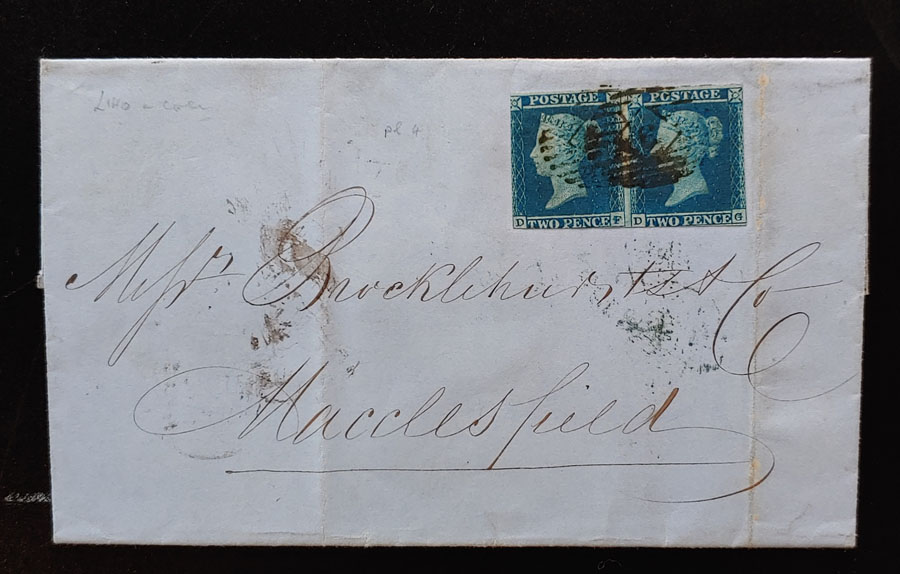 pl 4
POSTAGE POSTAGE
D TWO PENCE F D TWO PENCE G
Messrs Brocklehursts & Co
Macclesfield